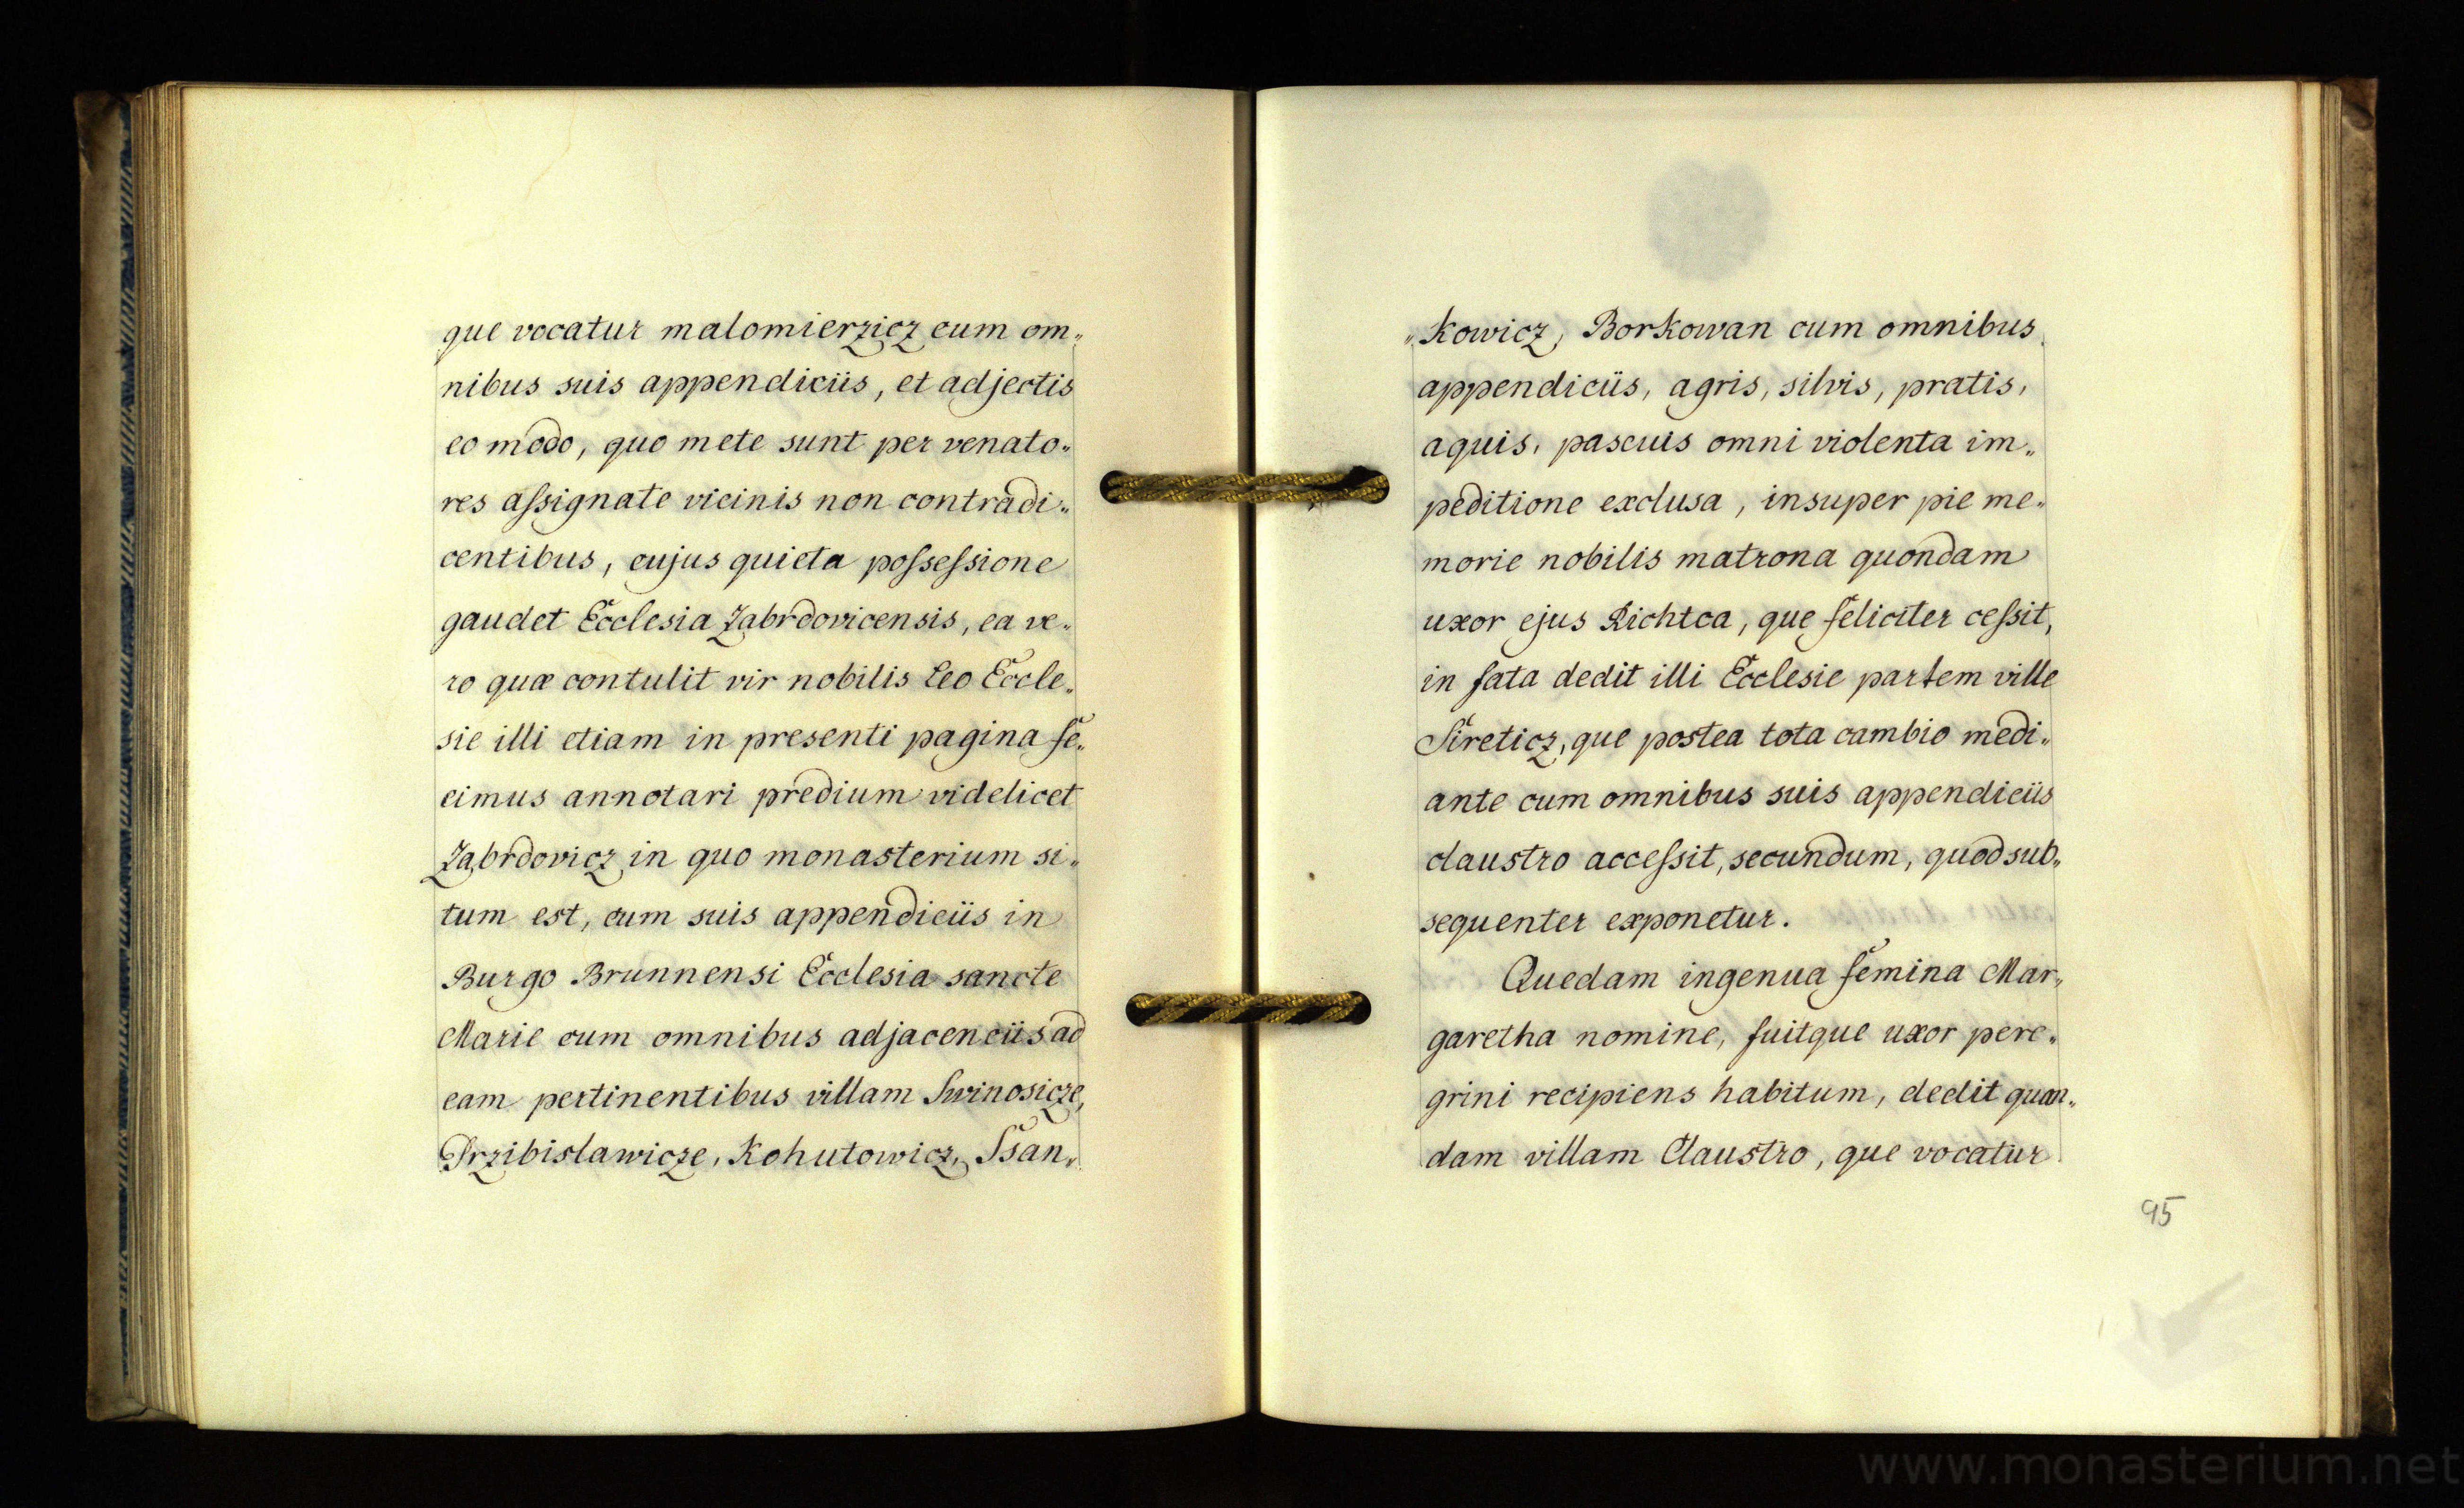 que vocatur malomierzicz cum om„
nibus suis appendiciis, et adjectis
eo modo, quo mete sunt per venato„
res aſsignate vicinis non contradi„
centibus, cujus quieta poſseſsione
gaudet Ecclesia Zabrdovicensis, ea ve„
ro quæ contulit vir nobilis Leo Eccle„
sie illi etiam in presenti pagina fe„
cimus annotari predium videlicet
Zabrdovicz in quo monasterium si„
tum est, cum suis appendiciis in
Burgo Brunnensi Ecclesia sancte
Marie cum omnibus adjacenciis ad
eam pertinentibus villam Swinosicze,
Przibislawicze, Kohutowicz, Ssan„
„kowicz, Borkowan cum omnibus
appendiciis, agris, silvis, pratis,
aquis, pascuis omni violenta im„
peditione exclusa, insuper pie me„
morie nobilis matrona quondam
uxor ejus Richtca, que feliciter ceſsit,
in fata dedit illi Ecclesie partem ville
Sireticz, que postea tota cambio medi„
ante cum omnibus suis appendiciis
claustro acceſsit, secundum, quod sub„
sequenter exponetur.
Quedam ingenua femina Mar„
garetha nomine, fuitque uxor pere„
grini recipiens habitum, dedit quan„
dam villam Claustro, que vocatur
95
www.monasterium.net